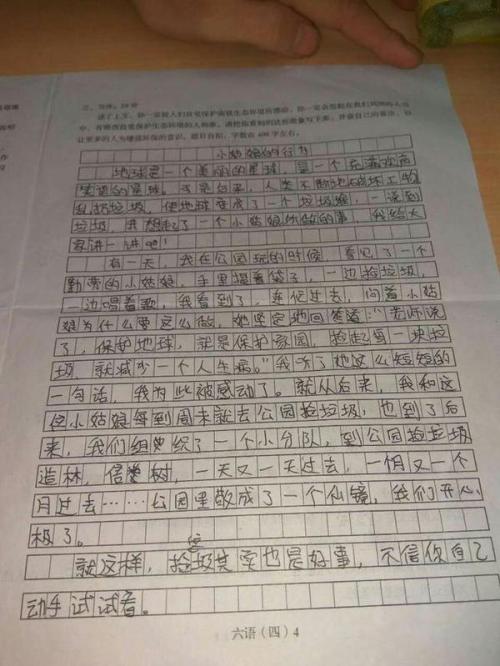 三、写作。30分
小姑娘的行为
地球是一个美丽的星球，是一个充满欢声
笑语的星球。可是后来，人类不断地破坏工物
乱扔垃圾，使地球变成了一个垃圾球，一说到
垃圾，我想起了一个小姑娘所做的事，我给大
家讲一讲吧！
有一天，我在公园玩的时候，看见了一个
勤劳的小姑娘，手里提着袋子，一边捡垃圾，
一边唱着歌，我看到了，连忙过去，问着小姑
娘为什么要这么做，她坚定地回答道：“老师说
了，保护地球，就是保护家园，捡起每一块垃
圾，就减少一个人生病。”我听了她这么短短的
一句话，我为此被感动了。就从后来，我和这
位小姑娘每到周未就去公园捡垃圾，也到了后
来，我们组织了一个小分队，到公园捡垃圾
造林，信树，一天又一天过去，一月又一个
月过去……公园里散成了一个仙镜，我们开心
极了。
就这样，捡垃圾其实也是好事，不信你自己
动手试试看。
六语（四）4